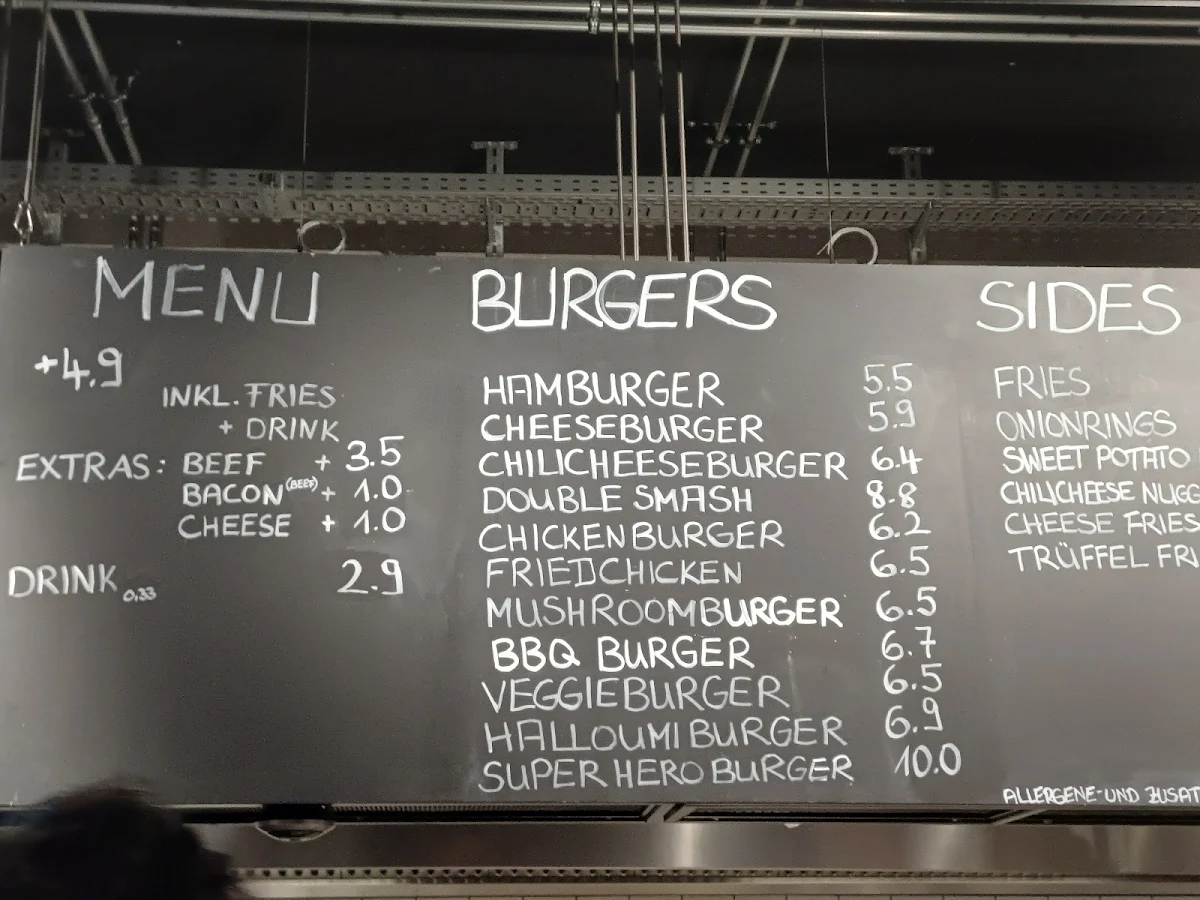 MENU
+4.9
INKL. FRIES
+ DRINK
EXTRAS: BEEF + 3.5
BACON (BEEF) + 1.0
CHEESE + 1.0
DRINK 0,33 2.9
BURGERS
HAMBURGER 5.5
CHEESEBURGER 5.9
CHILICHEESEBURGER 6.4
DOUBLE SMASH 8.8
CHICKENBURGER 6.2
FRIEDCHICKEN 6.5
MUSHROOMBURGER 6.5
BBQ BURGER 6.7
VEGGIEBURGER 6.5
HALLOUMI BURGER 6.9
SUPER HERO BURGER 10.0
SIDES
FRIES
ONIONRINGS
SWEET POTATO
CHILICHEESE NUGG
CHEESE FRIES
TRÜFFEL FRI
ALLERGENE-UND ZUSAT